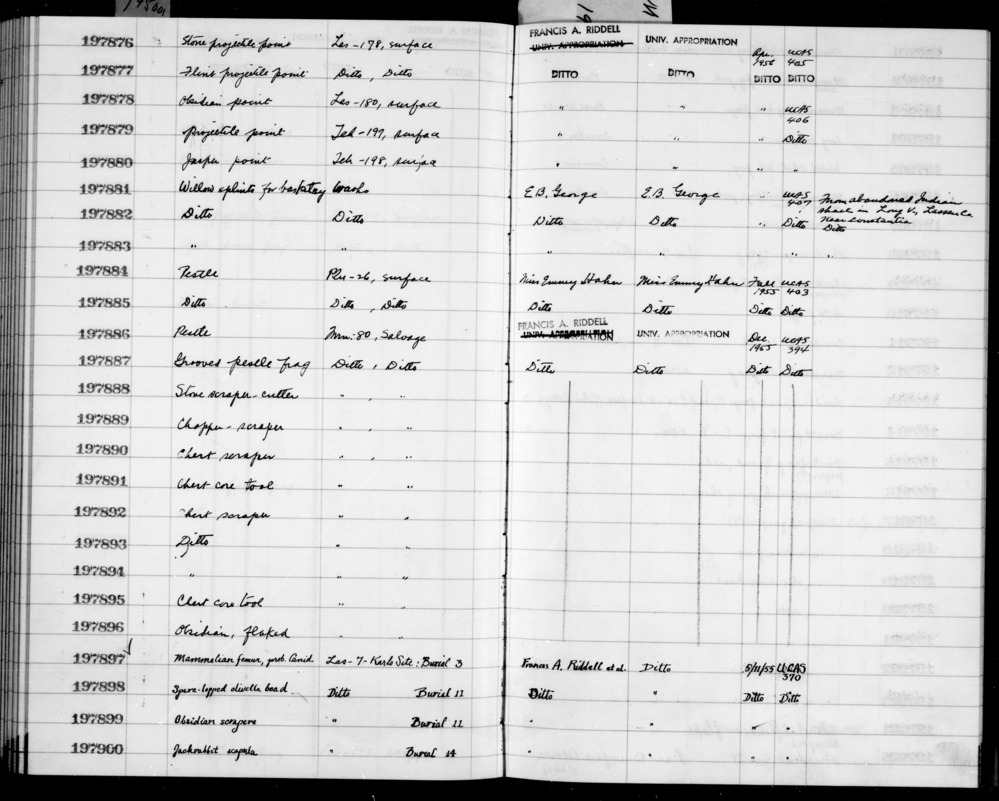 195001
19
197876 Stone projectile point Las-178, surface FRANCIS A. RIDDELL UNIV. APPROPRIATION UNIV. APPROPRIATION Apr. 1956 UCAS 405
197877 Flint projectile point Ditto, Ditto DITTO DITTO DITTO DITTO
197878 Obsidian point Las-180, surface " " " UCAS 406
197879 Projectile point Teh-197, surface " " " Ditto
197880 Jasper point Teh-198, surface " " " "
197881 Willow splints for basketry Washo E.B. George E.B. George " UCAS 407 From abandoned Indian shack in Long V., Lassen Co. near Constantia
197882 Ditto Ditto Ditto Ditto " Ditto Ditto
197883 " " " " " " "
197884 Pestle Plu-26, surface Miss Emmy Hahn Miss Emmy Hahn Fall 1955 UCAS 403
197885 Ditto Ditto, Ditto Ditto Ditto Ditto Ditto
197886 Pestle Mrn-80, Salvage FRANCIS A. RIDDELL UNIV. APPROPRIATION UNIV. APPROPRIATION Dec. 1955 UCAS 394
197887 Grooved pestle frag Ditto, Ditto Ditto Ditto Ditto Ditto
197888 Stone scraper-cutter " , "
197889 Chopper-scraper " , "
197890 Chert scraper " , "
197891 Chert core tool " "
197892 Chert scraper " "
197893 Ditto " "
197894 " " "
197895 Chert core tool " "
197896 Obsidian, flaked " "
197897 ✓ Mammalian femur, prob. Canid. Las-7-Karlo Site: Burial 3 Francis A. Riddell et al. Ditto 5/11/55 UCAS 370
197898 Spire-lopped olivella bead Ditto Burial 11 Ditto " Ditto Ditto
197899 Obsidian scrapers " Burial 11 " " " "
197900 Jackrabbit scapula " Burial 14 " " " "